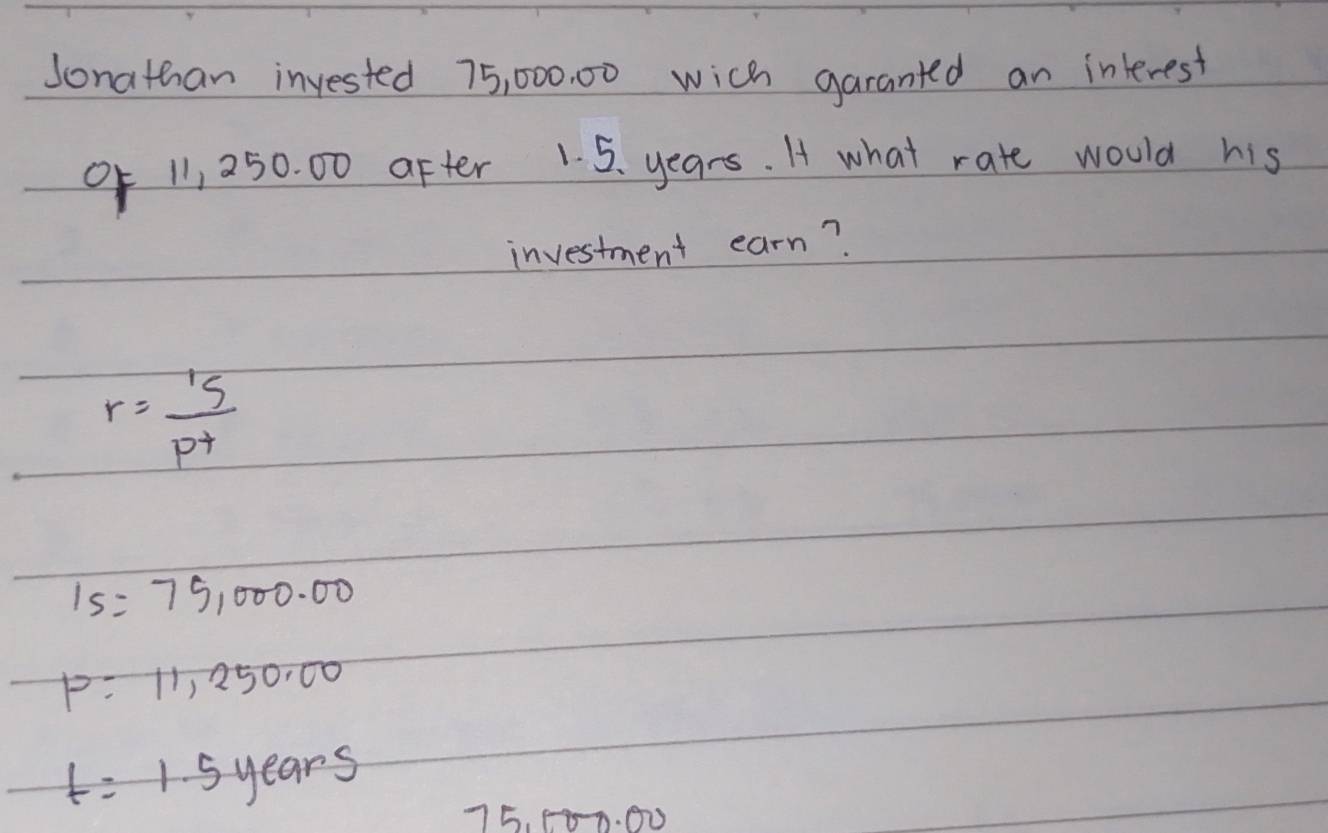 Jonathan invested 75,000.00 wich garanted an interest
of 11,250.00 after 1.5 years. It what rate would his
investment earn?
r = Is
pt
Is = 75,000.00
p = 11,250.00
t = 1.5 years
75,000.00